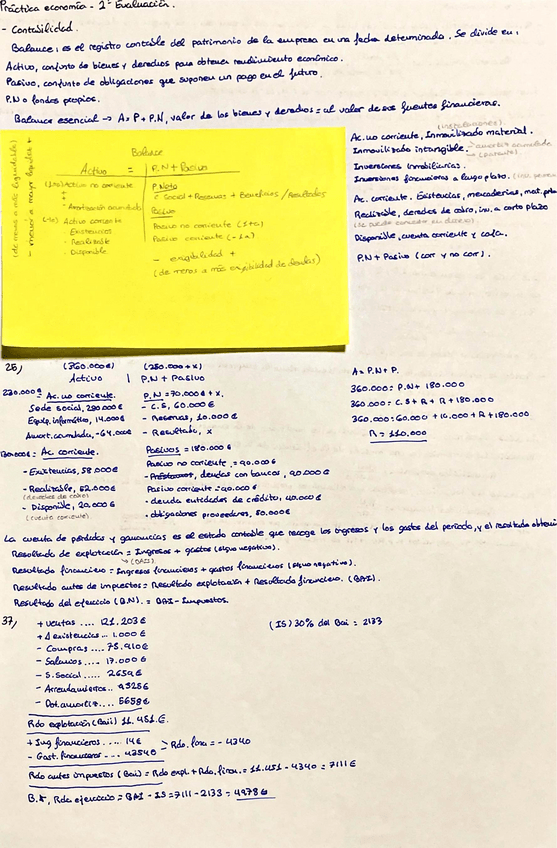 Práctica economía - 2ª Evaluación.
- Contabilidad.
Balance, es el registro contable del patrimonio de la empresa en una fecha determinada. Se divide en:
Activo, conjunto de bienes y derechos para obtener rendimiento económico.
Pasivo, conjunto de obligaciones que suponen un pago en el futuro.
P.N o fondos propios.
Balance esencial → A = P + P.N, valor de los bienes y derechos = al valor de sus fuentes financieras.
(instalaciones)
Ac. no corriente, Inmovilizado material.
Inmovilizado intangible (patente) amort. acumulada
Inversiones inmobiliarias.
Inversiones financieras a largo plazo.
Ac. corriente. Existencias, mercaderias, mat. prim
Realizable, derechos de cobro, inv. a corto plazo
(se puede convertir en dinero)
Disponible, cuenta corriente y caja.
P.N + Pasivo (corr y no corr).
Balance
Activo = P.N + Pasivo
(+1a) Activo no corriente
- Amortización acumulada
(-1a) Activo corriente
- Existencias
- Realizable
- Disponible
P. Neto
C. Social + Reservas + Beneficios / Resultados
Pasivo
Pasivo no corriente (+1a)
Pasivo corriente (-1a)
- exigibilidad +
(de menos a más exigibilidad de deudas)
(de menos a más liquidez)
- menor a mayor liquidez +
25)
(360.000€) (250.000 + x)
Activo | P.N + Pasivo
230.000€ = Ac. no corriente.
Sede social, 280.000€
Equip. informático, 14.000€
Amort. acumulada, -64.000€
130.000€ = Ac. corriente.
- Existencias, 58.000€
- Realizable, 52.000€
(derechos de cobro)
- Disponible, 20.000€
(cuenta corriente)
P.N = 70.000€ + x.
- C.S, 60.000€
- Reservas, 10.000€
- Resultado, x
Pasivos = 180.000€
Pasivo no corriente = 90.000€
- Préstamos, deudas con bancos, 90.000€
Pasivo corriente = 90.000€
- deuda entidades de crédito, 40.000€
- obligaciones proveedores, 50.000€
A = P.N + P.
360.000 = P.N + 180.000
360.000 = C.S + R + R + 180.000
360.000 = 60.000 + 10.000 + R + 180.000
R = 110.000
La cuenta de pérdidas y ganancias es el estado contable que recoge los ingresos y los gastos del periodo, y el resultado obteni
Resultado de explotación = Ingresos + gastos (signo negativo).
(BAII)
Resultado financiero = Ingresos financieros + gastos financieros (signo negativo).
Resultado antes de impuestos = Resultado explotación + Resultado financiero. (BAI).
Resultado del ejercicio (B.N). = BAI - Impuestos.
37)
+ Ventas .... 121.203€
+ Δ existencias .. 1.000€
- Compras .... 75.910€
- Salarios .... 17.000€
- S. Social .... 2659€
- Arrendamientos .. 9525€
- Dot. amortiz .. 5658€
Rdo explotación (Baii) 11.451.€.
+ Ing financieros .... 14€
- Gast. financieros .... 4354€
Rdo. fina = - 4340
Rdo antes impuestos (Bai) = Rdo expl. + Rdo. fina. = 11.451 - 4340 = 7111€
B.N, Rdo ejercicio = BAI - IS = 7111 - 2133 = 4978€
(IS) 30% del Bai = 2133